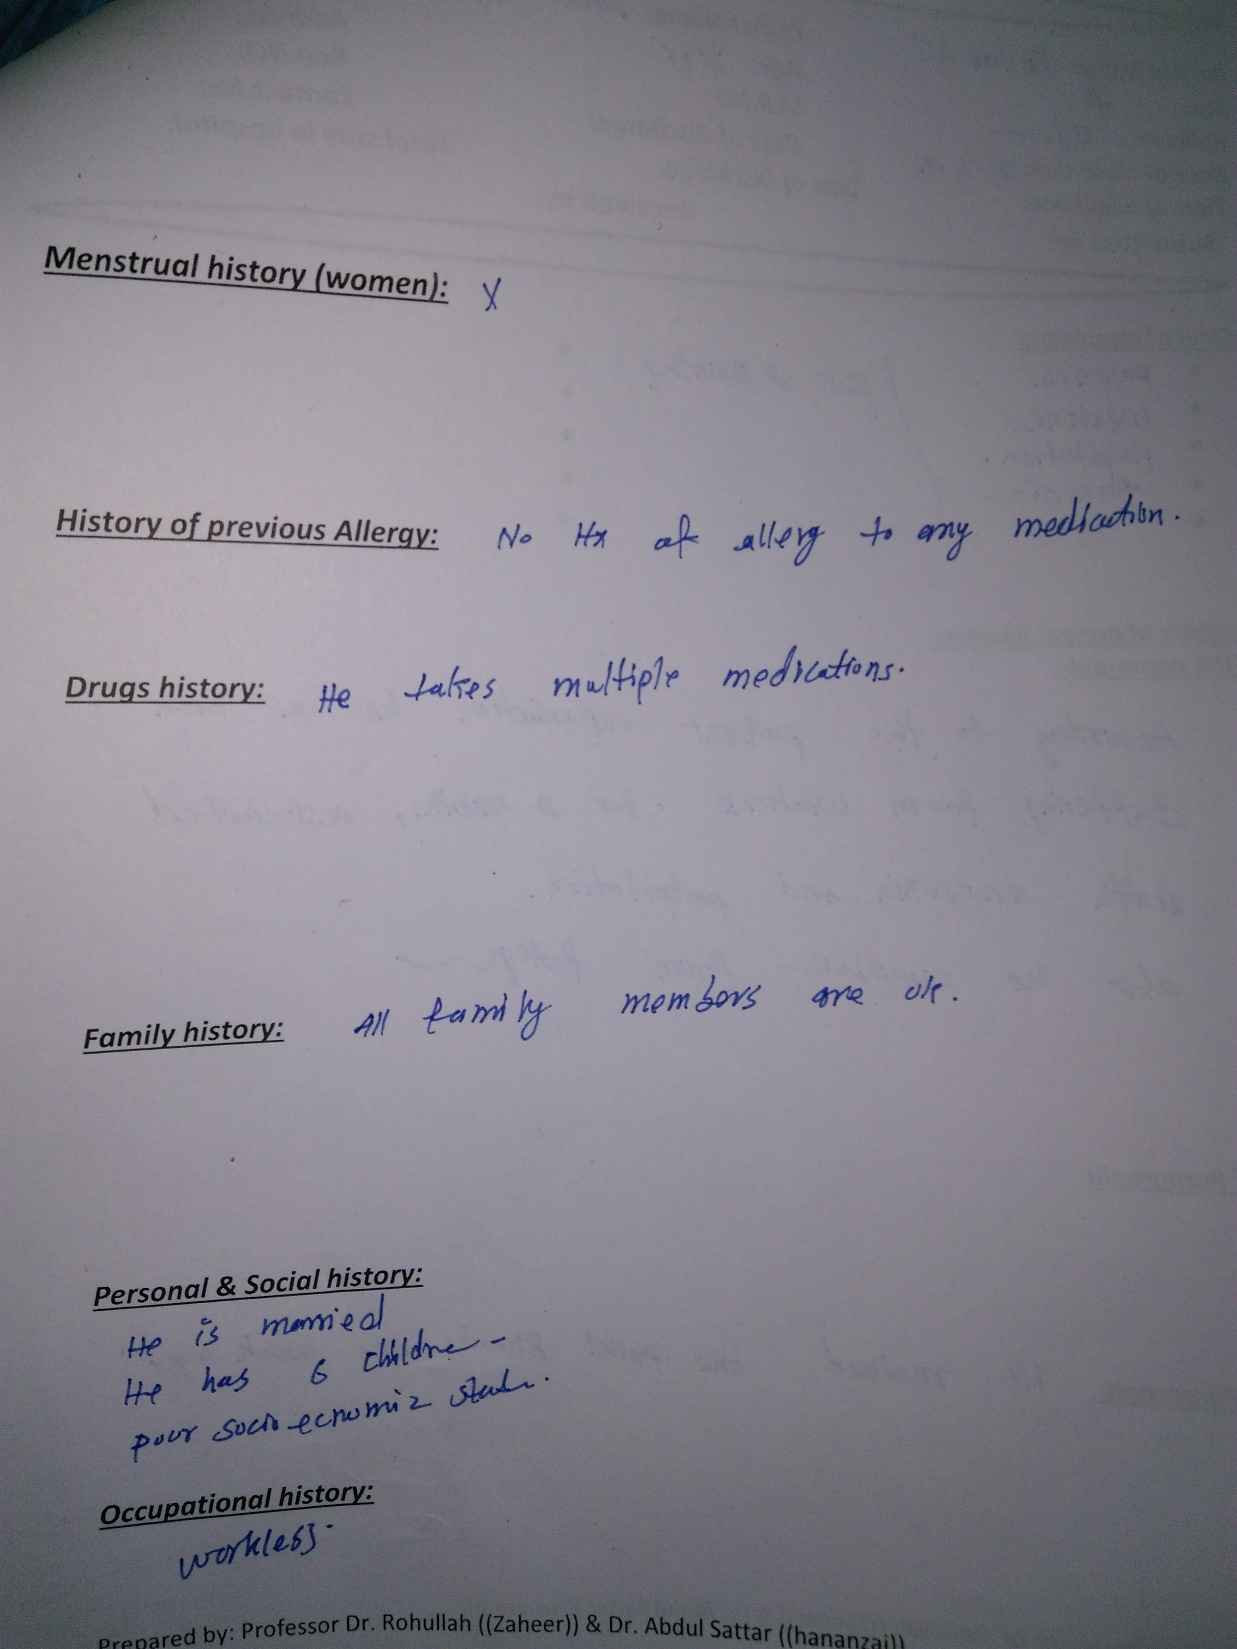 Menstrual history (women): X
History of previous Allergy: No Hx of allerg to any medication.
Drugs history: He takes multiple medications.
Family history: All family members are ok.
Personal & Social history:
He is married
He has 6 childre
poor socio economic
Occupational history:
workless.
Prepared by: Professor Dr. Rohullah ((Zaheer)) & Dr. Abdul Sattar ((hananzai))